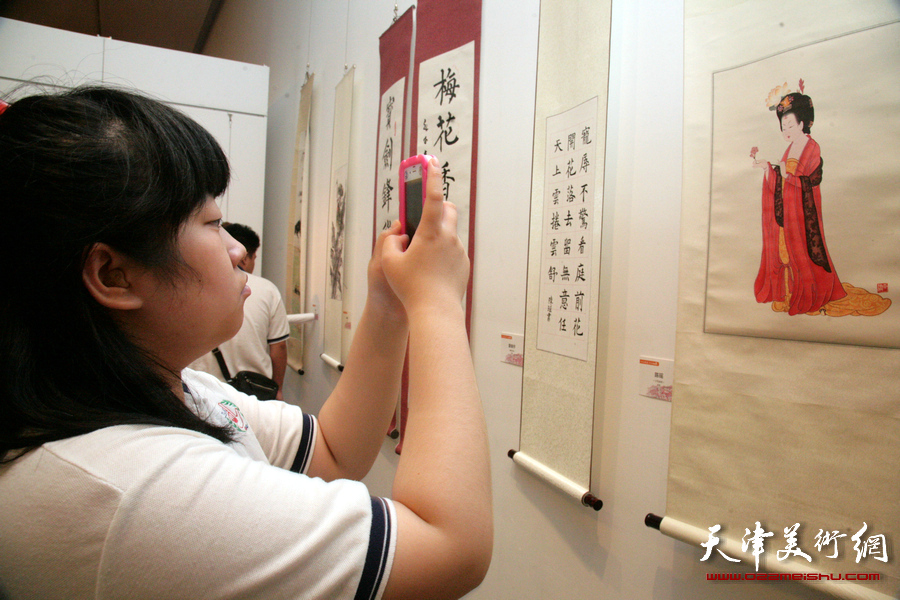 寶劍鋒
梅花香
寵辱不驚看庭前花
開花落去留無意任
天上雲捲雲舒
天津美術網
www.022meishu.com